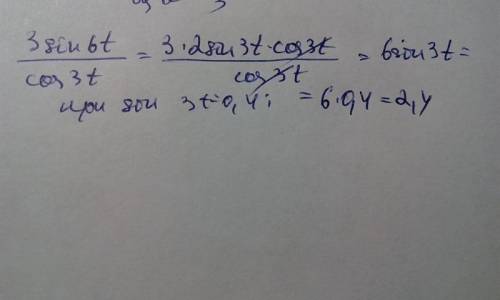 3sin6t / cos3t = 3·2sin3t·cos3t / cos3t = 6sin3t =
при sin 3t=0,4; = 6·0,4=2,4